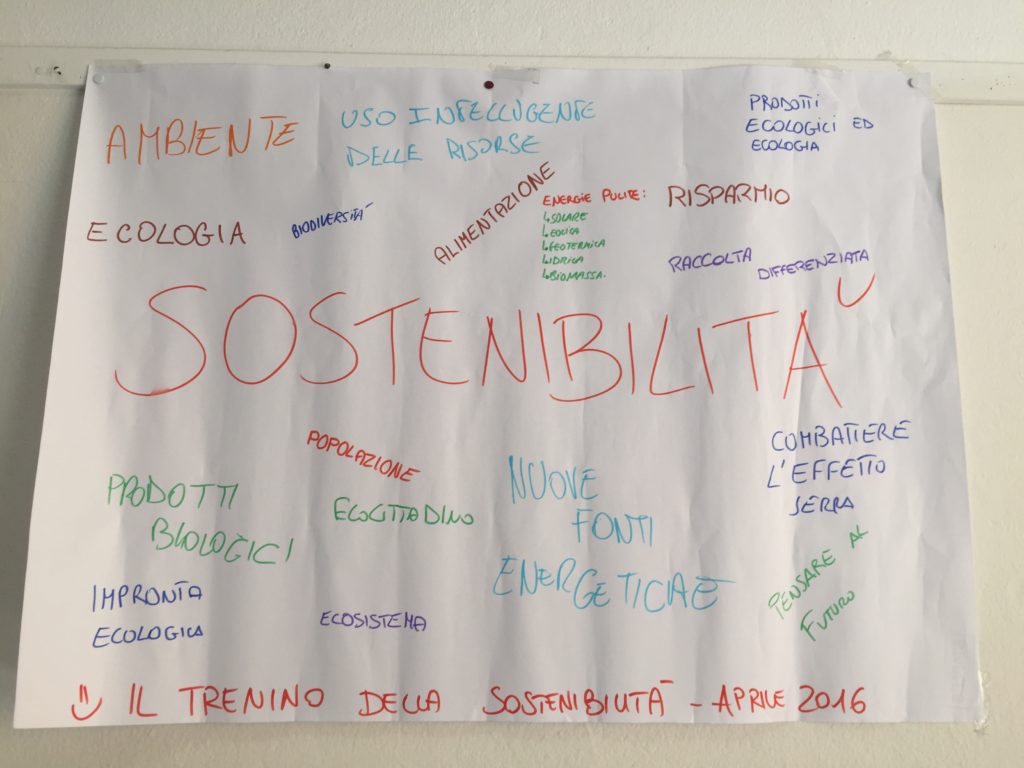 AMBIENTE
USO INTELLIGENTE
DELLE RISORSE
PRODOTTI
ECOLOGICI ED
ECOLOGIA
ECOLOGIA
BIODIVERSITÀ
ALIMENTAZIONE
ENERGIE PULITE:
↳SOLARE
↳EOLICA
↳GEOTERMICA
↳IDRICA
↳BIOMASSA.
RISPARMIO
RACCOLTA DIFFERENZIATA
SOSTENIBILITÀ
POPOLAZIONE
COMBATTERE
L'EFFETTO
SERRA
PRODOTTI
BIOLOGICI
ECOCITTADINO
NUOVE
FONTI
ENERGETICHE
PENSARE AL
FUTURO
IMPRONTA
ECOLOGICA
ECOSISTEMA
IL TRENINO DELLA SOSTENIBILITÀ - APRILE 2016